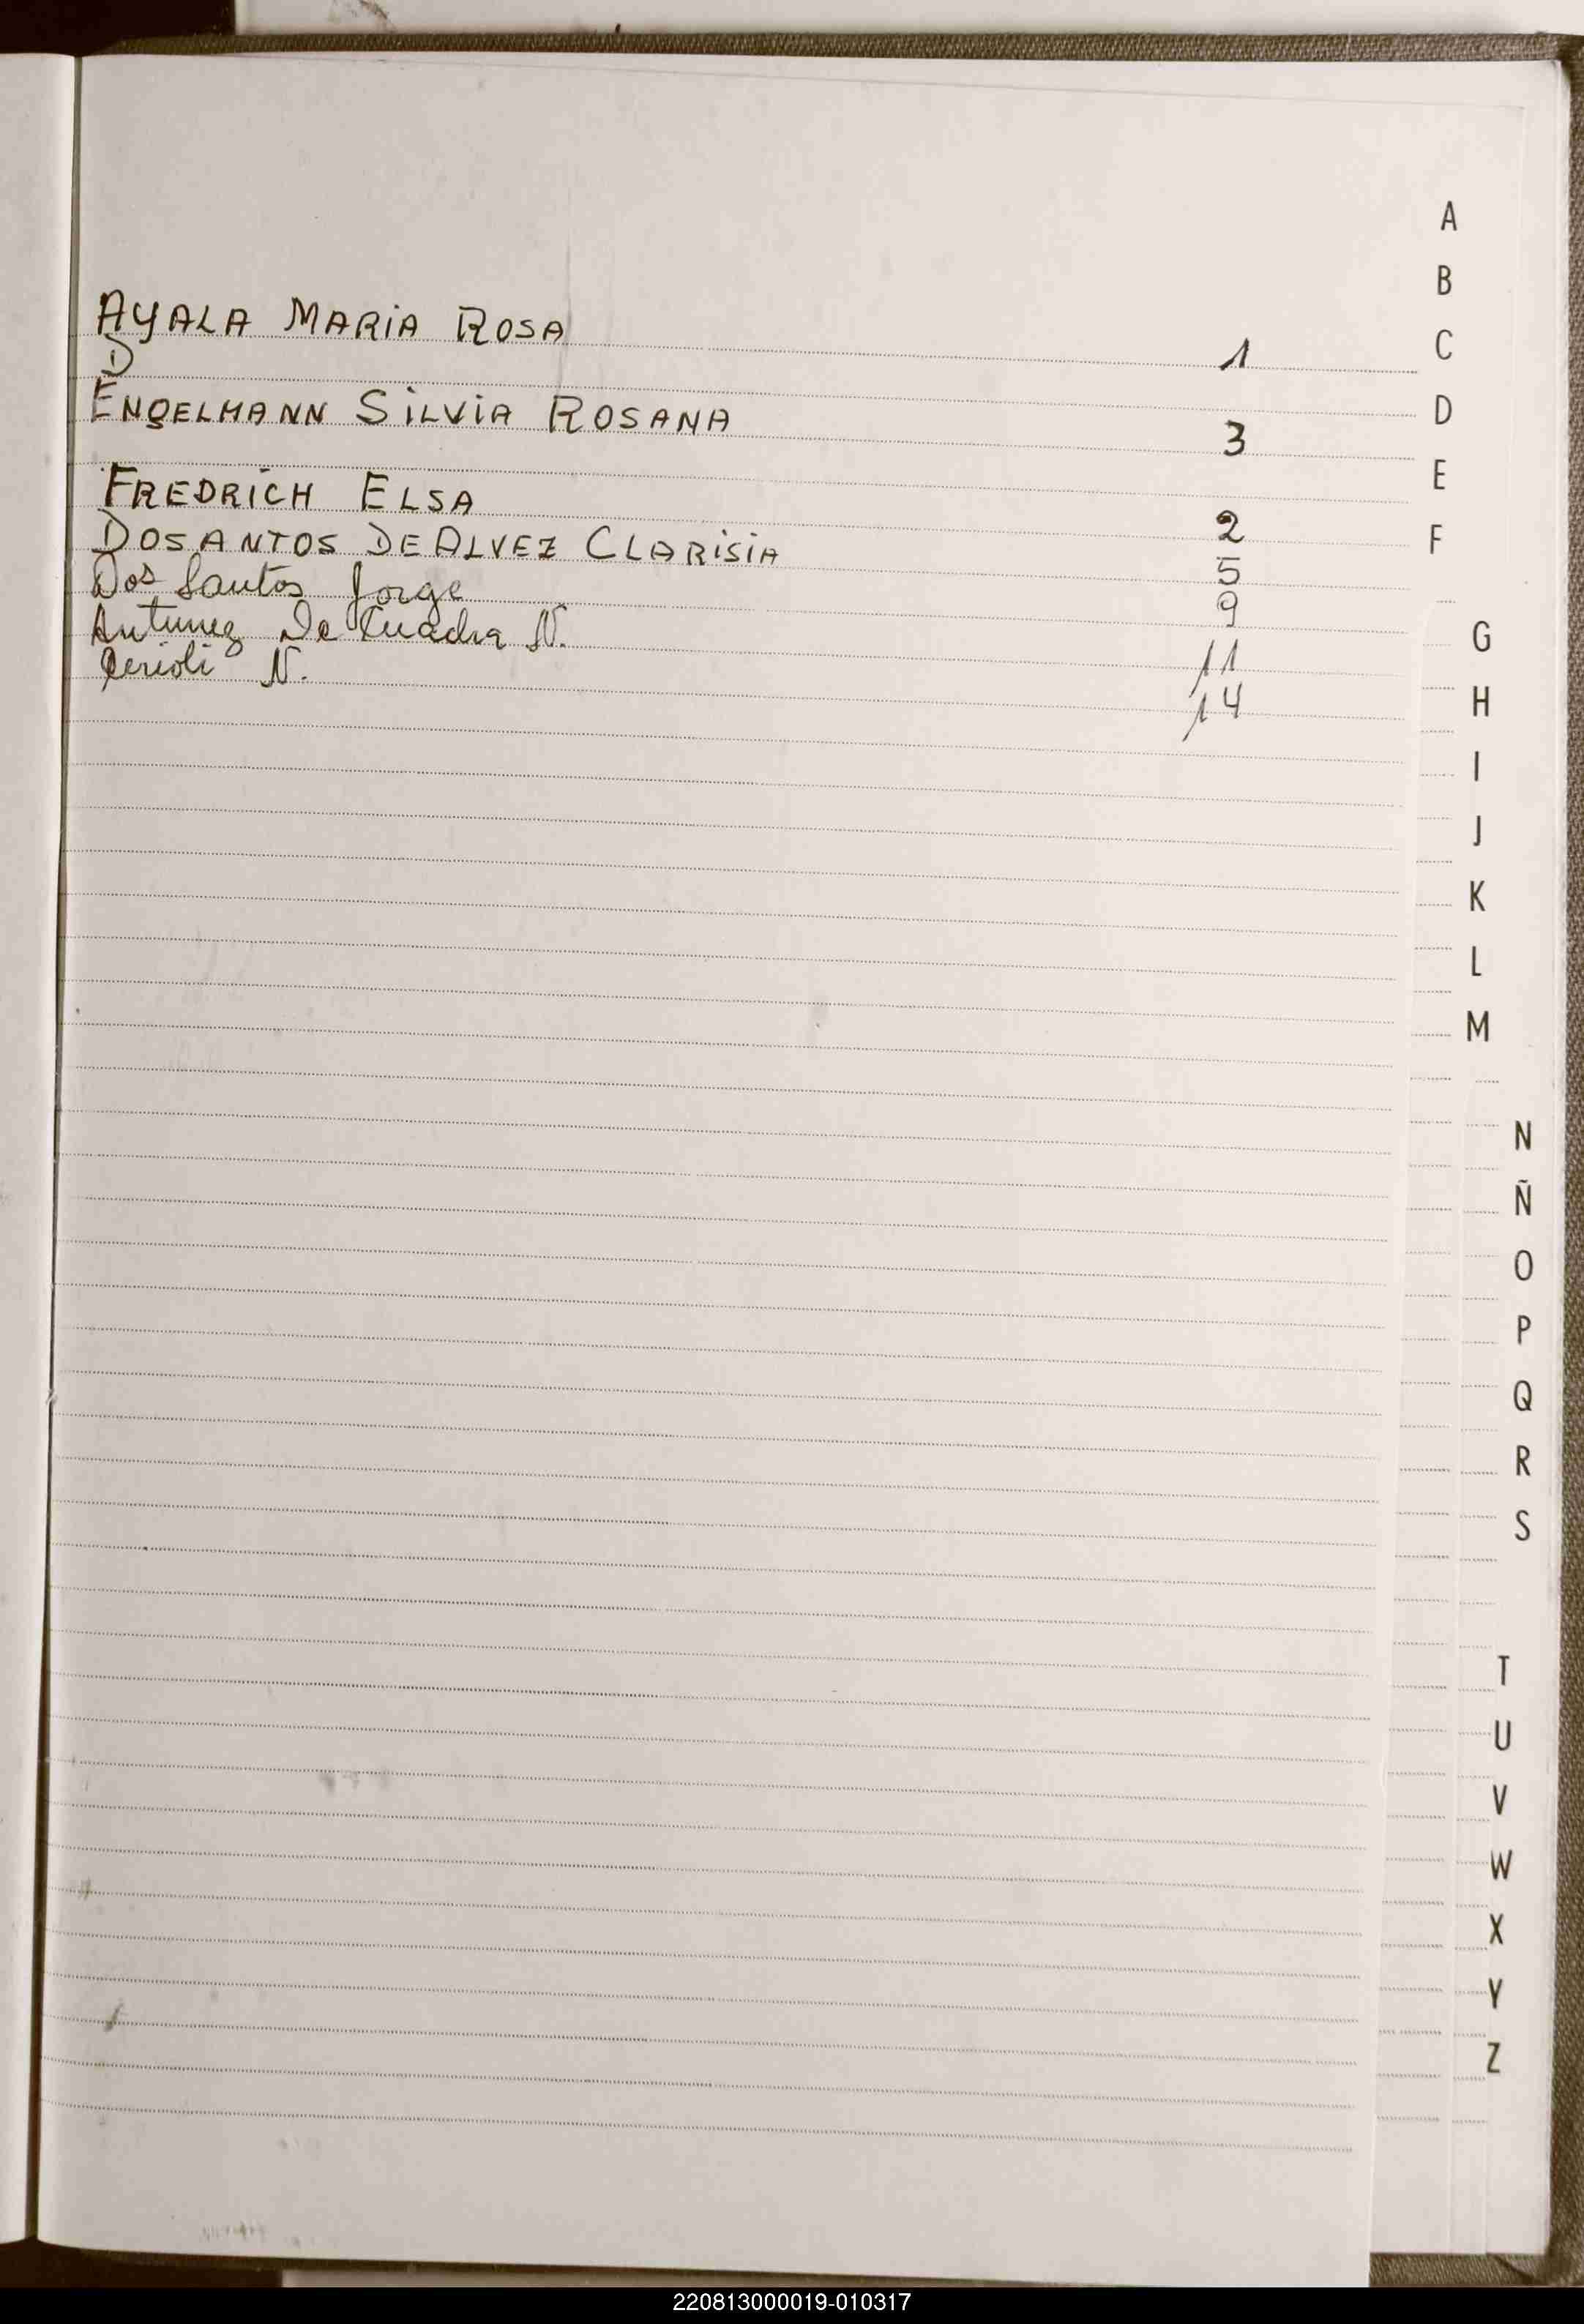 AYALA MARIA ROSA 1
D
ENGELMANN SILVIA ROSANA 3
FREDRICH ELSA 2
DOSANTOS DE ALVEZ CLARISIA 5
Dos Santos Jorge 9
Antunez De Cuadra N. 11
Cerioli N. 14
A
B
C
D
E
F
G
H
I
J
K
L
M
N
Ñ
O
P
Q
R
S
T
U
V
W
X
Y
Z
220813000019-010317